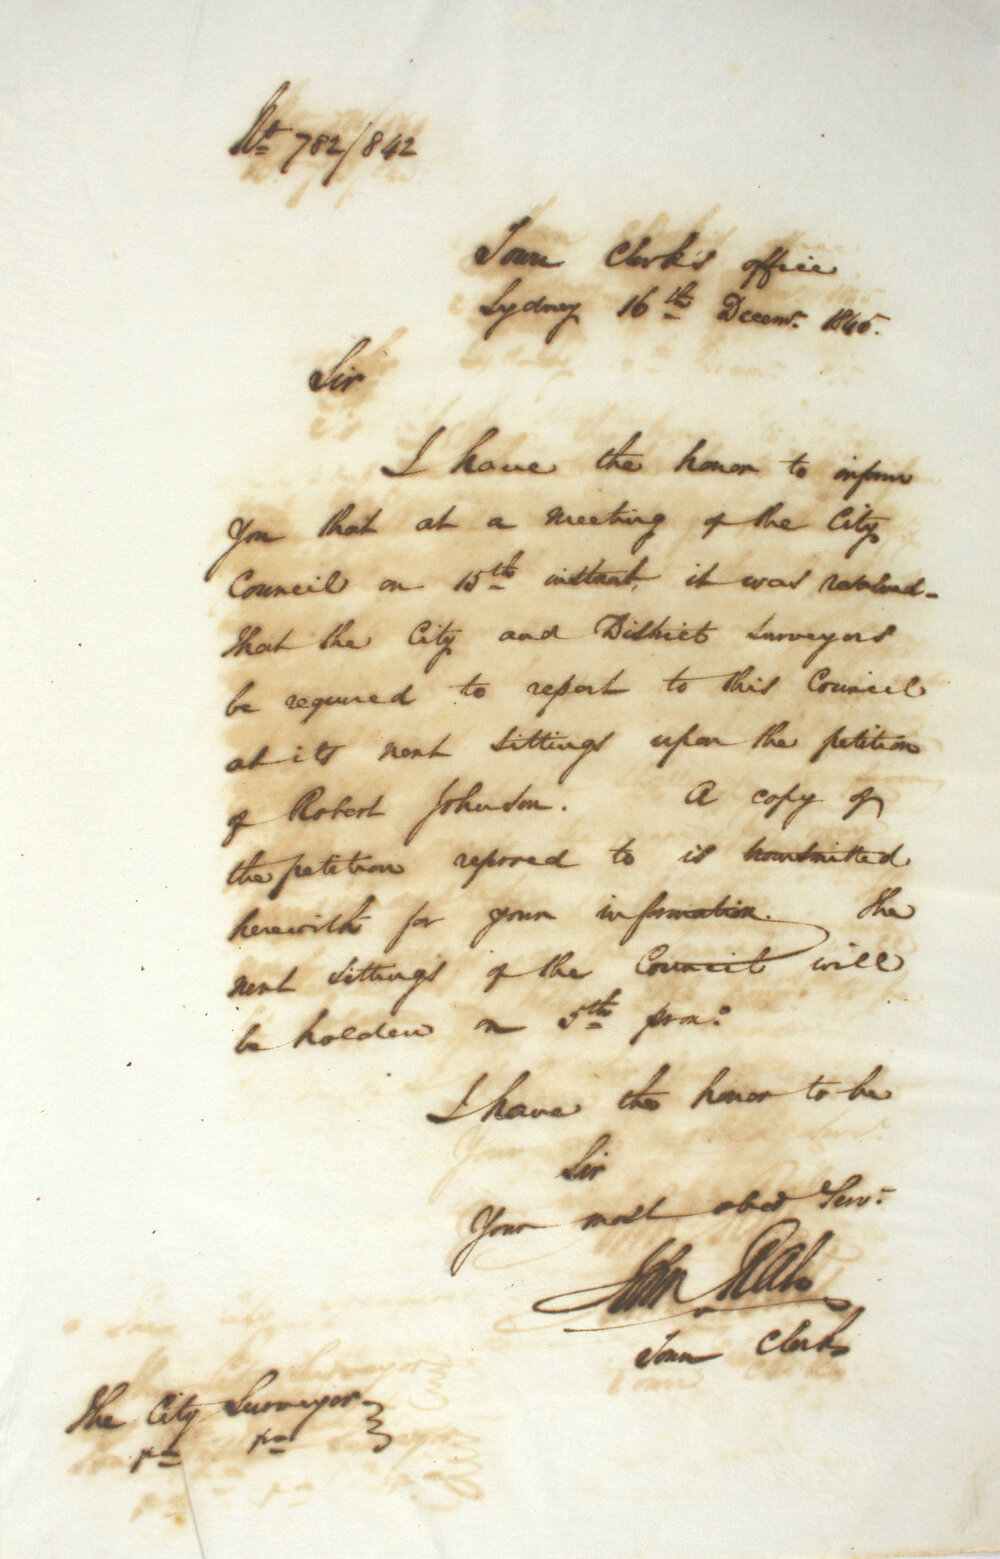 782/842
Town Clerk's office
Sydney 16th Decemr. 1845.
Sir
I have the honor to inform
You that at a meeting of the City
Council on 15th instant, it was resolved-
that the City and District Surveyors
be required to report to this Council
at its next Sittings upon the petition
of Robert Johnson. A copy of
the petition referred to is transmitted
herewith for your information. The
next Sittings of the Council will
be holden on 5th proxo.
I have the honor to be
Sir
Your most obed Serv.
John
Town Clerk
The City Surveyor